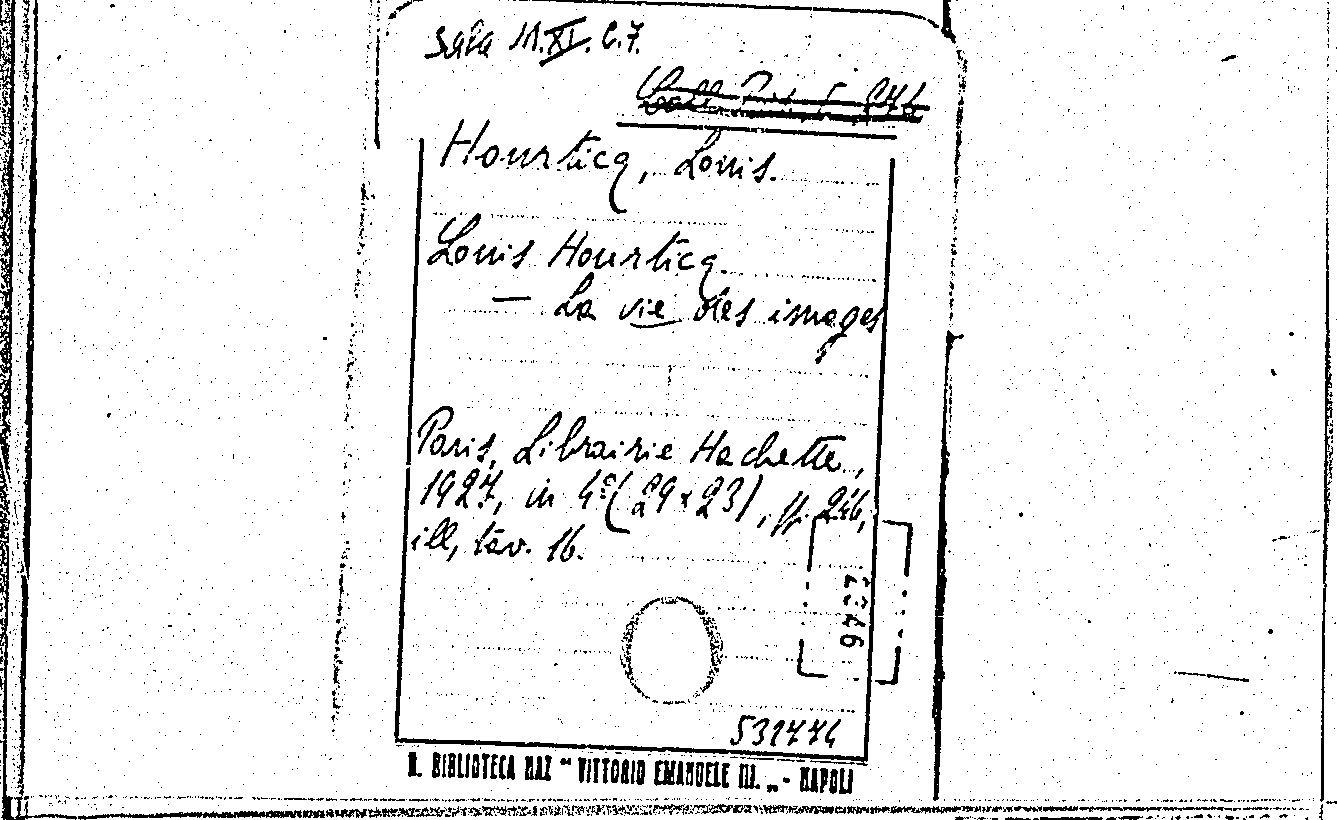 Sala 11.XI.C.7.
Hourticq, Louis.
Louis Hourticq.
— La vie des images
Paris, Librairie Hachette,
1927, in 4º (29x23), pp. 246,
ill, tav. 16.
531774
R. BIBLIOTECA NAZ " VITTORIO EMANUELE III. „ - NAPOLI